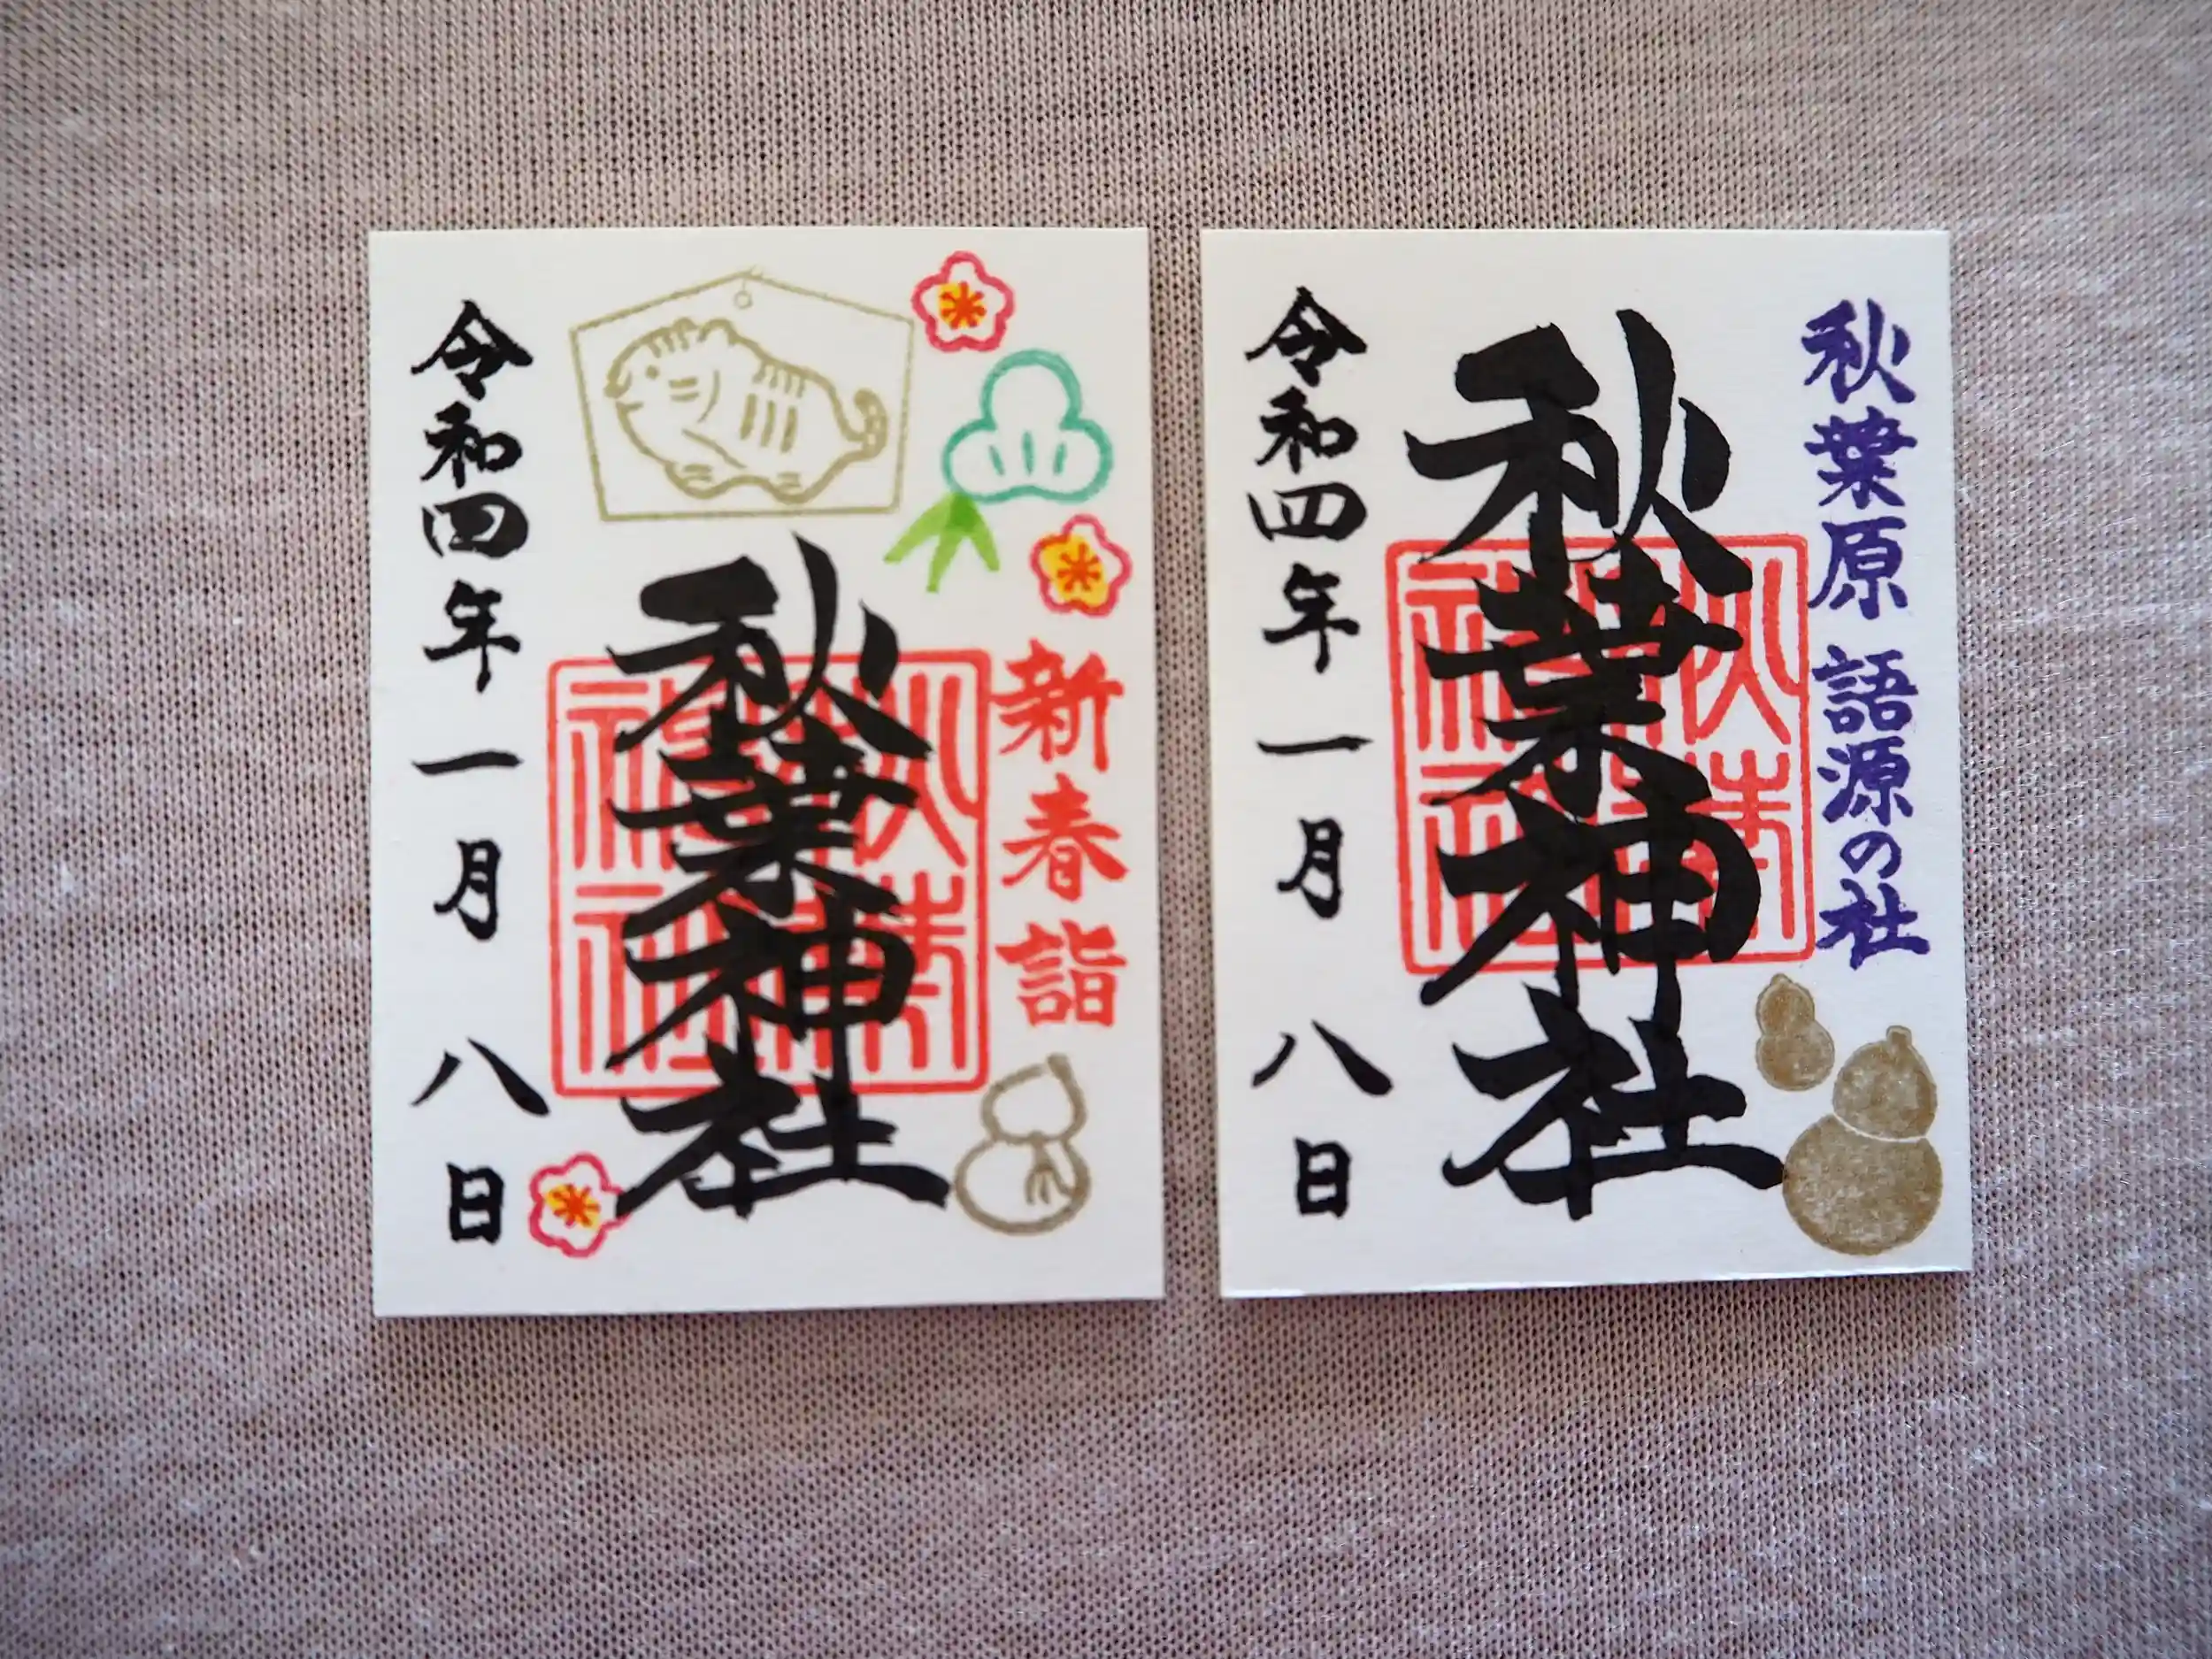 新春詣
秋葉神社
令和四年一月八日
秋葉原 語源の社
秋葉神社
令和四年一月八日